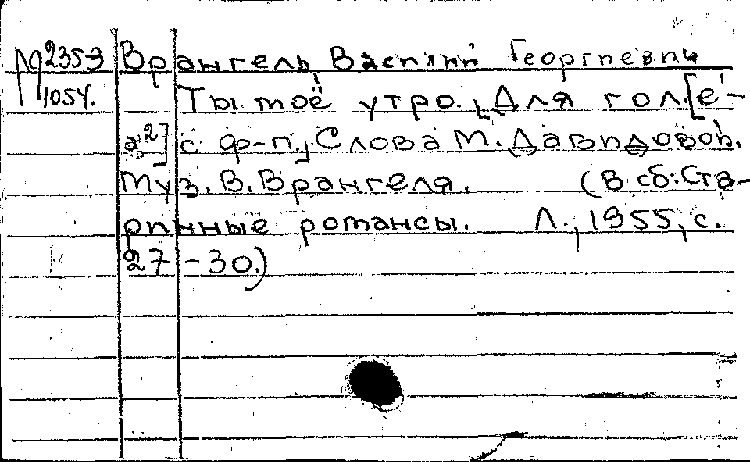 М 2353 Врангель, Василий Георгиевич
1054. Ты моё утро. Для гол. [e¹-
a²] с ф-п. Слова М. Давидовой.
Муз. В. Врангеля. (В сб: Ста-
ринные романсы. Л., 1955, с.
27-30.)